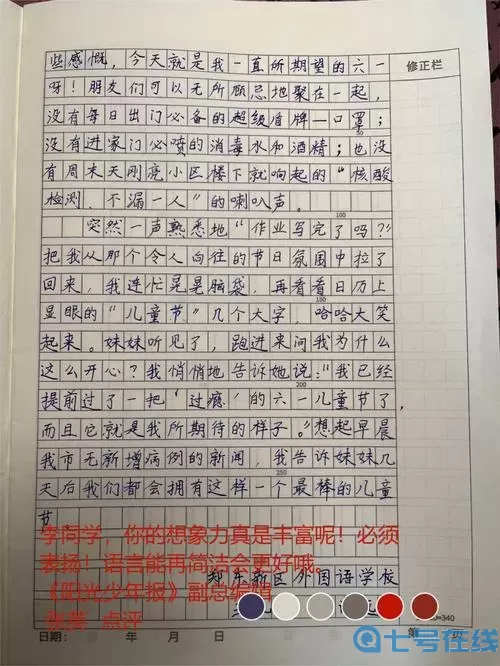 些感慨，今天就是我一直所期望的六一
修正栏
呀！朋友们可以无所顾忌地聚在一起，
没有每日出门必备的超级盾牌—口罩；
50
没有进家门必喷的消毒水和酒精；也没
有周末天刚亮小区楼下就响起的“核酸
检测，不漏一人”的喇叭声。
100
突然一声熟悉地“作业写完了吗？”
把我从那个令人向往的节日氛围中拉了
回来，我连忙晃晃脑袋，再看看日历上
150
显眼的“儿童节”几个大字，哈哈大笑
起来。妹妹听见了，跑进来问我为什么
这么开心？我悄悄地告诉她说：“我已经
200
提前过了一把“过瘾”的六一儿童节了，
而且它就是我所期待的样子。”想起早晨
我市无新增病例的新闻，我告诉妹妹几
250
天后我们都会拥有这样一个最棒的儿童
节
李同学，你的想象力真是丰富呢！必须
表扬！语言能再简洁会更好哦。
郑东新区外国语学校
《阳光少年报》副总编辑
点评
=340
日期： 年 月 日
第 页
七号在线